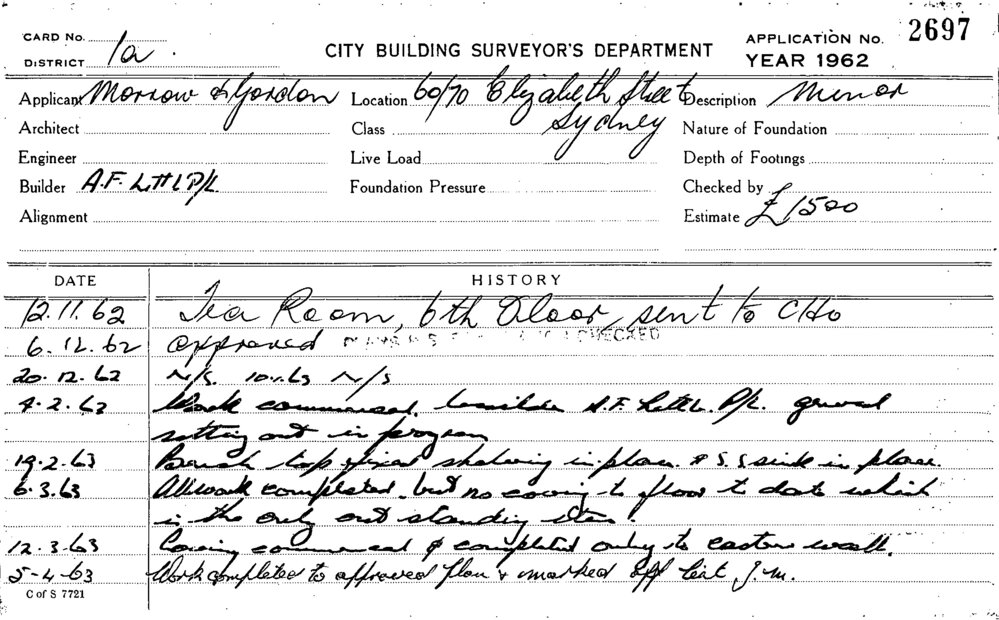 CARD No.
DISTRICT 1a.
CITY BUILDING SURVEYOR'S DEPARTMENT
APPLICATION No. 2697
YEAR 1962
Applicant Morrow & Gordon Location 60/70 Elizabeth Street Description Minor
Architect Class Sydney Nature of Foundation
Engineer Live Load Depth of Footings
Builder A.F. Little P/L. Foundation Pressure Checked by
Alignment Estimate £1500
DATE HISTORY
12.11.62 Tea Room, 6th Floor, sent to CHO
6.12.62 approved CHECKED
20.12.62 N/S. 10.1.63 N/S
4.2.63 Work commenced. A.F. Little. P/L. general
setting out in progress
19.2.63 Bench top fixed shelving in place. & S.S sink in place.
6.3.63 All work completed, but no coving to floor to date which
is the only out standing item.
12.3.63 Coving commenced & completed only to eastern wall.
5-4-63 Work completed to approved plan & marked off list J.M.
C of S 7721